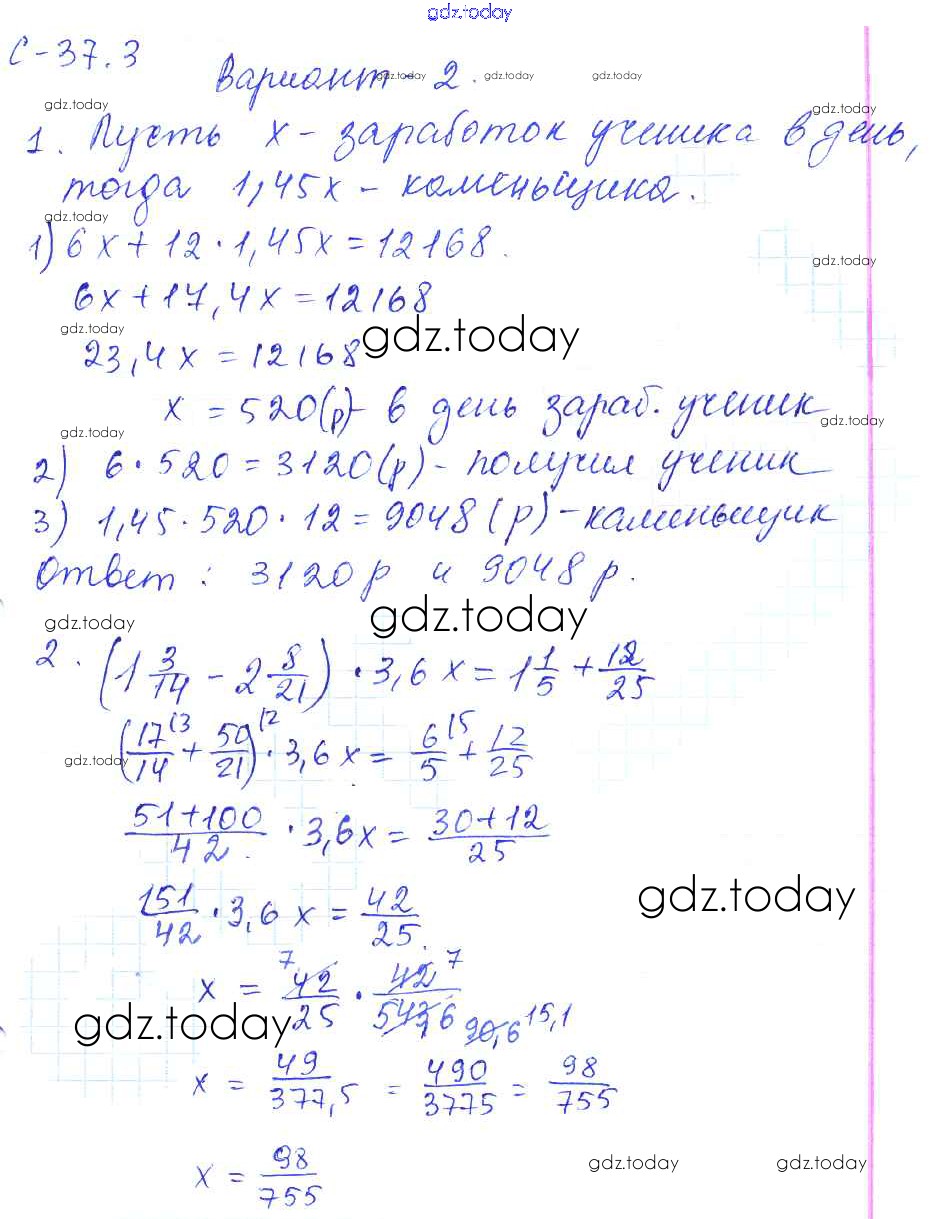 gdz.today
С-37.3
Вариант-2.
gdz.today gdz.today gdz.today
gdz.today gdz.today
1. Пусть x - заработок ученика в день,
тогда 1,45x - каменьщика.
gdz.today
1) 6x + 12 · 1,45x = 12168.
gdz.today
6x + 17,4x = 12168
gdz.today gdz.today
23,4x = 12168
x = 520(р) - в день зараб. ученик
gdz.today gdz.today
2) 6 · 520 = 3120(р) - получил ученик
3) 1,45 · 520 · 12 = 9048 (р) - каменьщик
Ответ: 3120 р и 9048 р.
gdz.today gdz.today
2. (1 3/14 - 2 8/21) · 3,6x = 1 1/5 + 12/25
(17/14 (3 + 50/21) (2 · 3,6x = 6/5 (5 + 12/25
gdz.today
(51+100)/42 · 3,6x = (30+12)/25
151/42 · 3,6x = 42/25.
gdz.today
x = 7 42/25 · 42 7/543,6 90,6 15,1
gdz.today
x = 49/377,5 = 490/3775 = 98/755
x = 98/755
gdz.today gdz.today